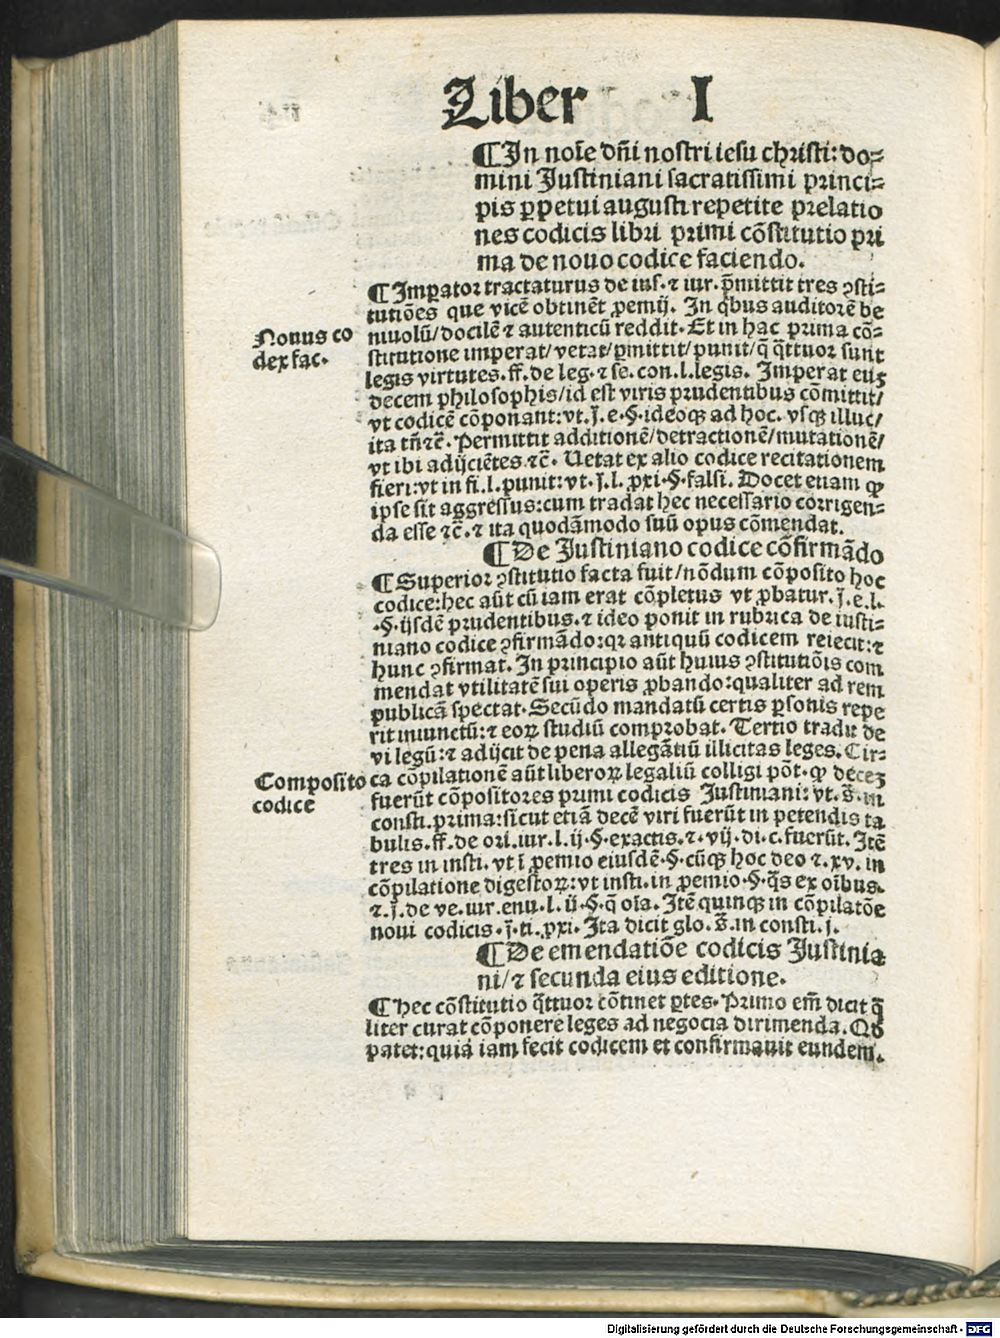 Liber I
¶ In noīe dñi nostri iesu christi: do⸗
mini Justiniani sacratissimi princi⸗
pis ꝑpetui augusti repetite prelatio
nes codicis libri primi cōstitutio pri
ma de nouo codice faciendo.
¶ Imꝑator tractaturus de iuſ. ⁊ iur. p̄mittit tres ꝯsti⸗
tutiōes que vicē obtinēt ꝓemij. In qͥbus auditorē be
Nouus co
dex fac.
niuolū/docilē ⁊ autenticū reddit. Et in hac prima cō⸗
stitutione imperat/vetat/ꝑmittit/punit/q̄ q̄ttuor sunt
legis virtutes. ff. de leg. ⁊ se. con. l. legis. Imperat eniꝫ
decem philosophis/id est viris prudentibus cōmittit/
vt codicē cōponant: vt. j̄. e. §. ideoqꝫ ad hoc. vsqꝫ illuc/
ita tñ ⁊c̄. Permittit additionē/detractionē/mutationē/
vt ibi adijciētes ⁊c̄. Uetat ex alio codice recitationem
fieri: vt in fi. l. punit: vt. j̄. l. ꝓxi. §. falsi. Docet etiam ꝙ
ipse sit aggressus: cum tradat hec necessario corrigen⸗
da esse ⁊c̄. ⁊ ita quodāmodo suū opus cōmendat.
¶ De Justiniano codice cōfirmādo
¶ Superior ꝯstitutio facta fuit/nōdum cōposito hoc
codice: hec aūt cū iam erat cōpletus vt ꝓbatur. j̄. e. l.
. §. ijsdē prudentibus. ⁊ ideo ponit in rubrica de iusti⸗
niano codice ꝯfirmādo: qꝛ antiquū codicem reiecit: ⁊
hunc ꝯfirmat. In principio aūt huius ꝯstitutiōis com
mendat vtilitatē sui operis ꝓbando: qualiter ad rem
publicā spectat. Secūdo mandatū certis ꝑsonis repe
rit iniunctū: ⁊ eoꝝ studiū comprobat. Tertio tradit de
vi legū: ⁊ adijcit de pena allegātiū illicitas leges. Cir⸗
Composito
codice
ca cōpilationē aūt liberoꝝ legaliū colligi pōt. ꝙ deceꝫ
fuerūt cōpositores primi codicis Justiniani: vt. s̄. in
consti. prima: sicut etiā decē viri fuerūt in petendis ta
bulis. ff. de ori. iur. l. ij. §. exactis. ⁊. vij. di. c. fuerūt. Itē
tres in insti. vt ī ꝓemio eiusdē. §. cūqꝫ hoc deo ⁊. xv. in
cōpilatione digestoꝝ: vt insti. in ꝓemio. §. q̄s ex oībus.
⁊. j̄. de ve. iur. enu. l. ij. §. q̄ oīa. Itē quinqꝫ in cōpilatōe
noui codicis. j̄. ti. ꝓxi. Ita dicit glo. s̄. in consti. j.
¶ De emendatiōe codicis Justinia
ni/⁊ secunda eius editione.
¶ Hec cōstitutio q̄ttuor cōtinet ꝑtes. Primo em̄ dicit q̄
liter curat cōponere leges ad negocia dirimenda. Qd̓
patet: quia iam fecit codicem et confirmauit eundem.
Digitalisierung gefördert durch die Deutsche Forschungsgemeinschaft - DFG